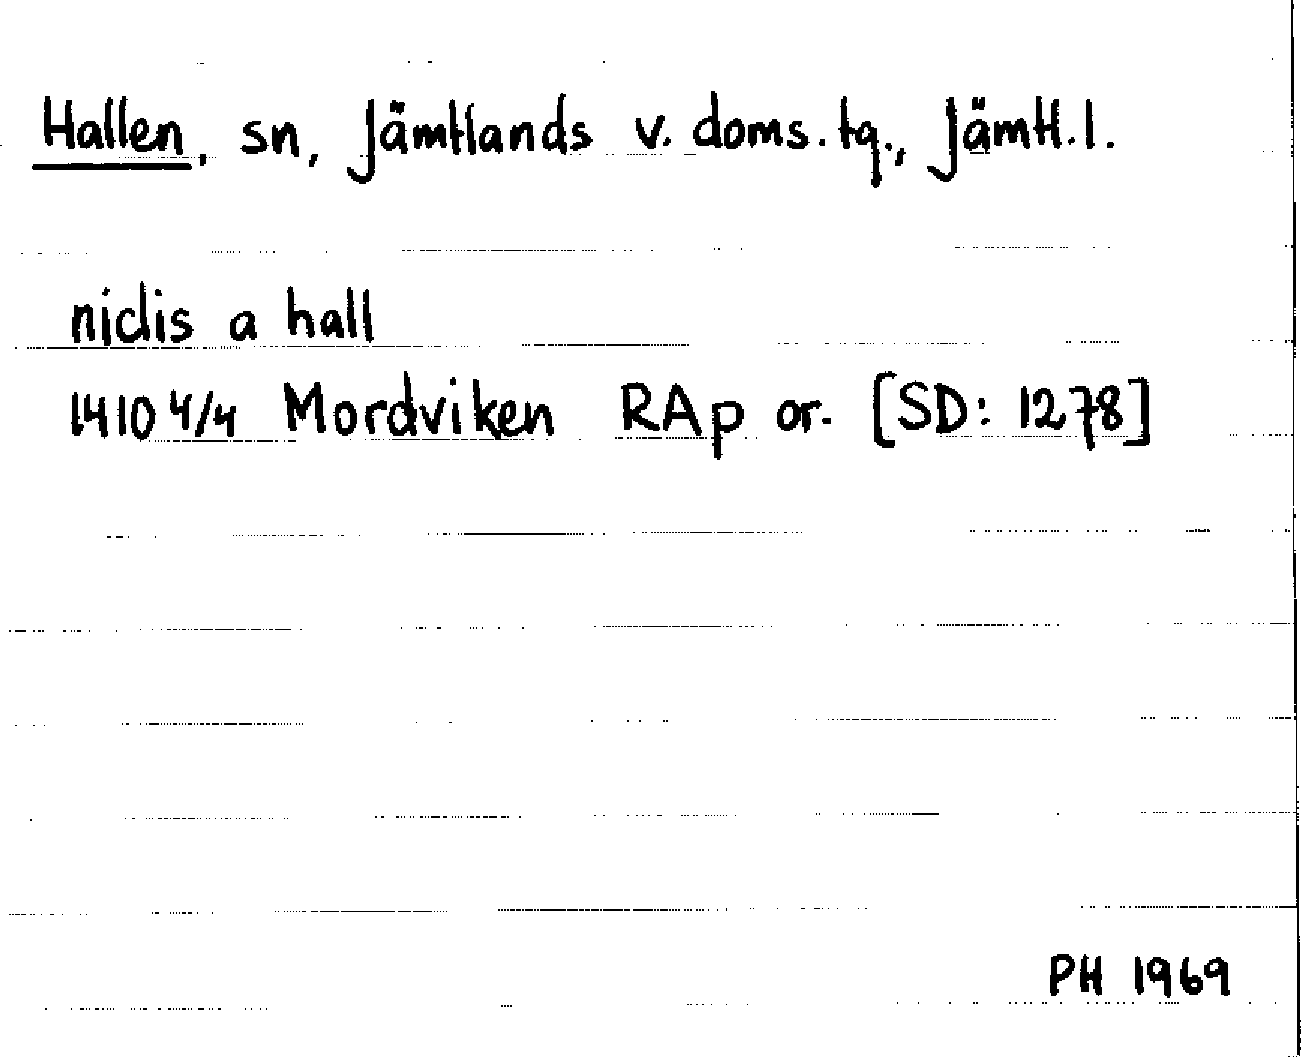 Hallen, sn, Jämtlands v. doms. tg., Jämtl.l.
nidis a hall
1410 4/4 Mordviken RAp or. [SD: 1278]
PH 1969